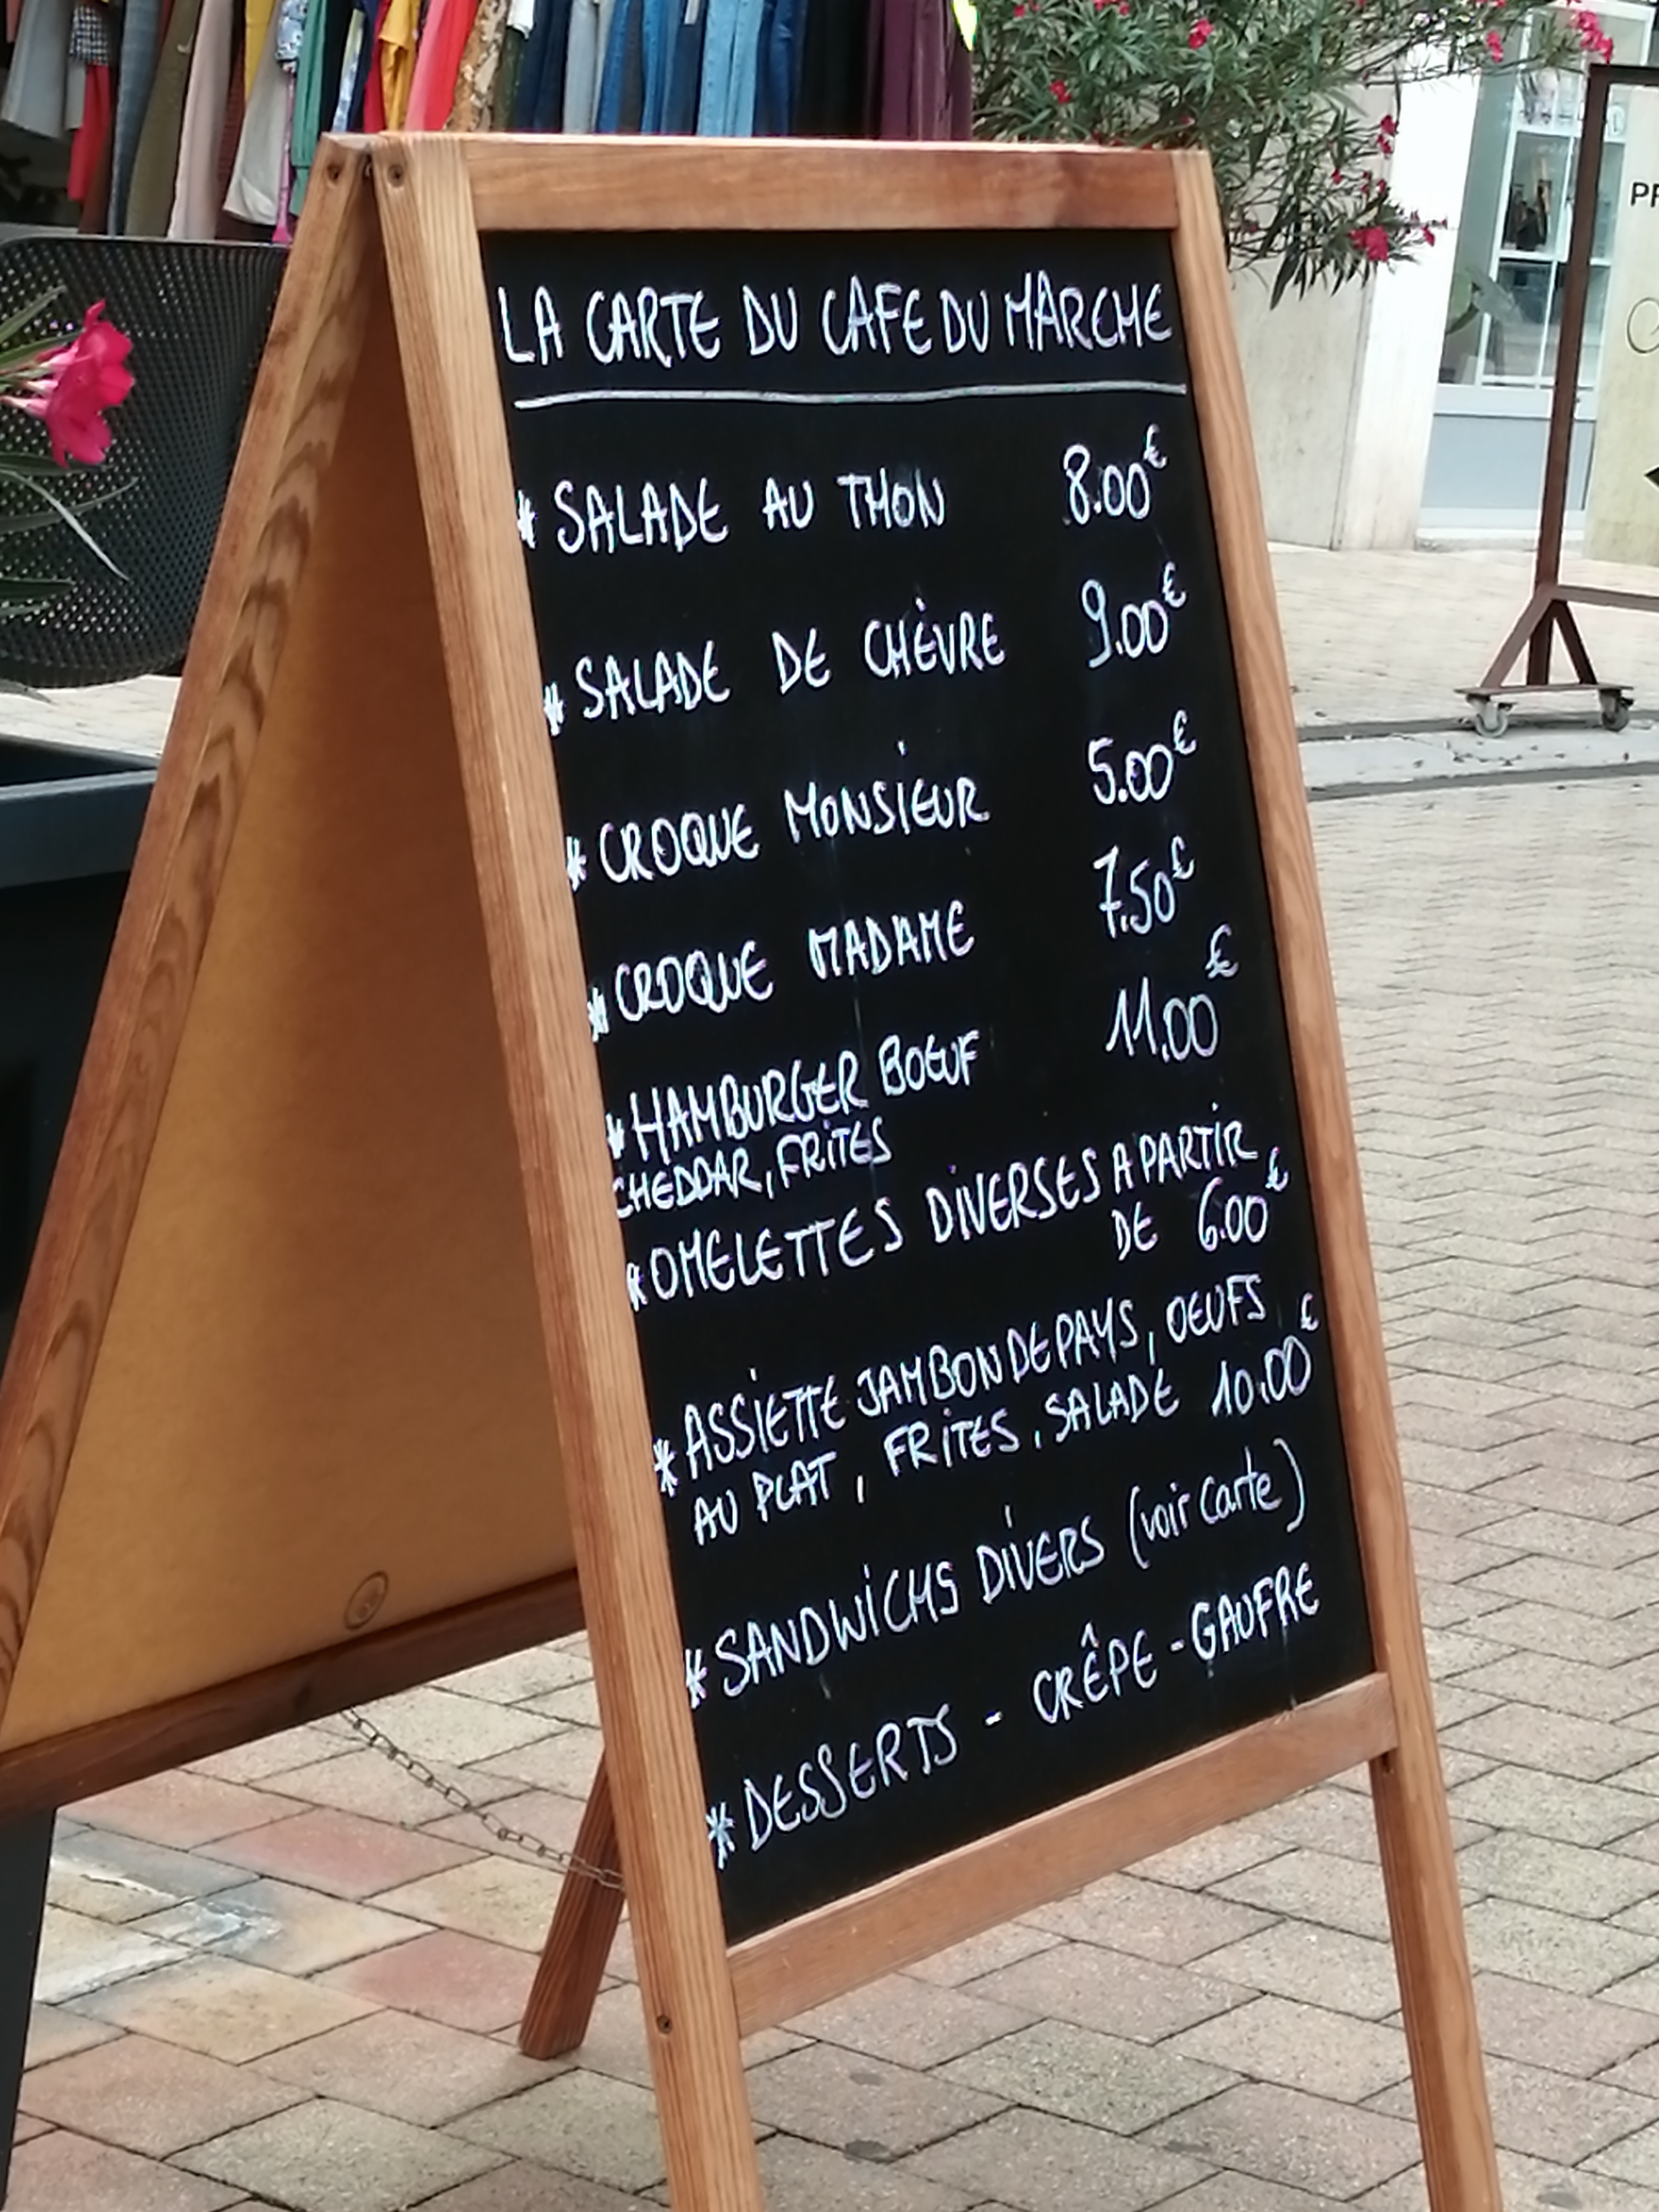 LA CARTE DU CAFE DU MARCHE
* SALADE AU THON 8.00€
* SALADE DE CHÈVRE 9.00€
* CROQUE MONSIEUR 5.00€
* CROQUE MADAME 7.50€
* HAMBURGER BOEUF 11.00€
CHEDDAR, FRITES
* OMELETTES DIVERSES A PARTIR
DE 6.00€
* ASSIETTE JAMBON DE PAYS, OEUFS
AU PLAT, FRITES, SALADE 10.00€
* SANDWICHS DIVERS (voir carte)
* DESSERTS - CRÊPE - GAUFRE